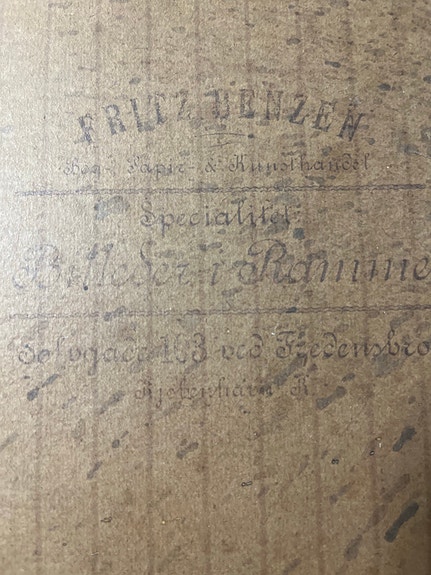 FRITZ BENZEN
Bog-, Papir- & Kunsthandel
Specialitet:
Billeder i Ramme
Sølvgade 103 ved Fredensbro
Kjøbenhavn K